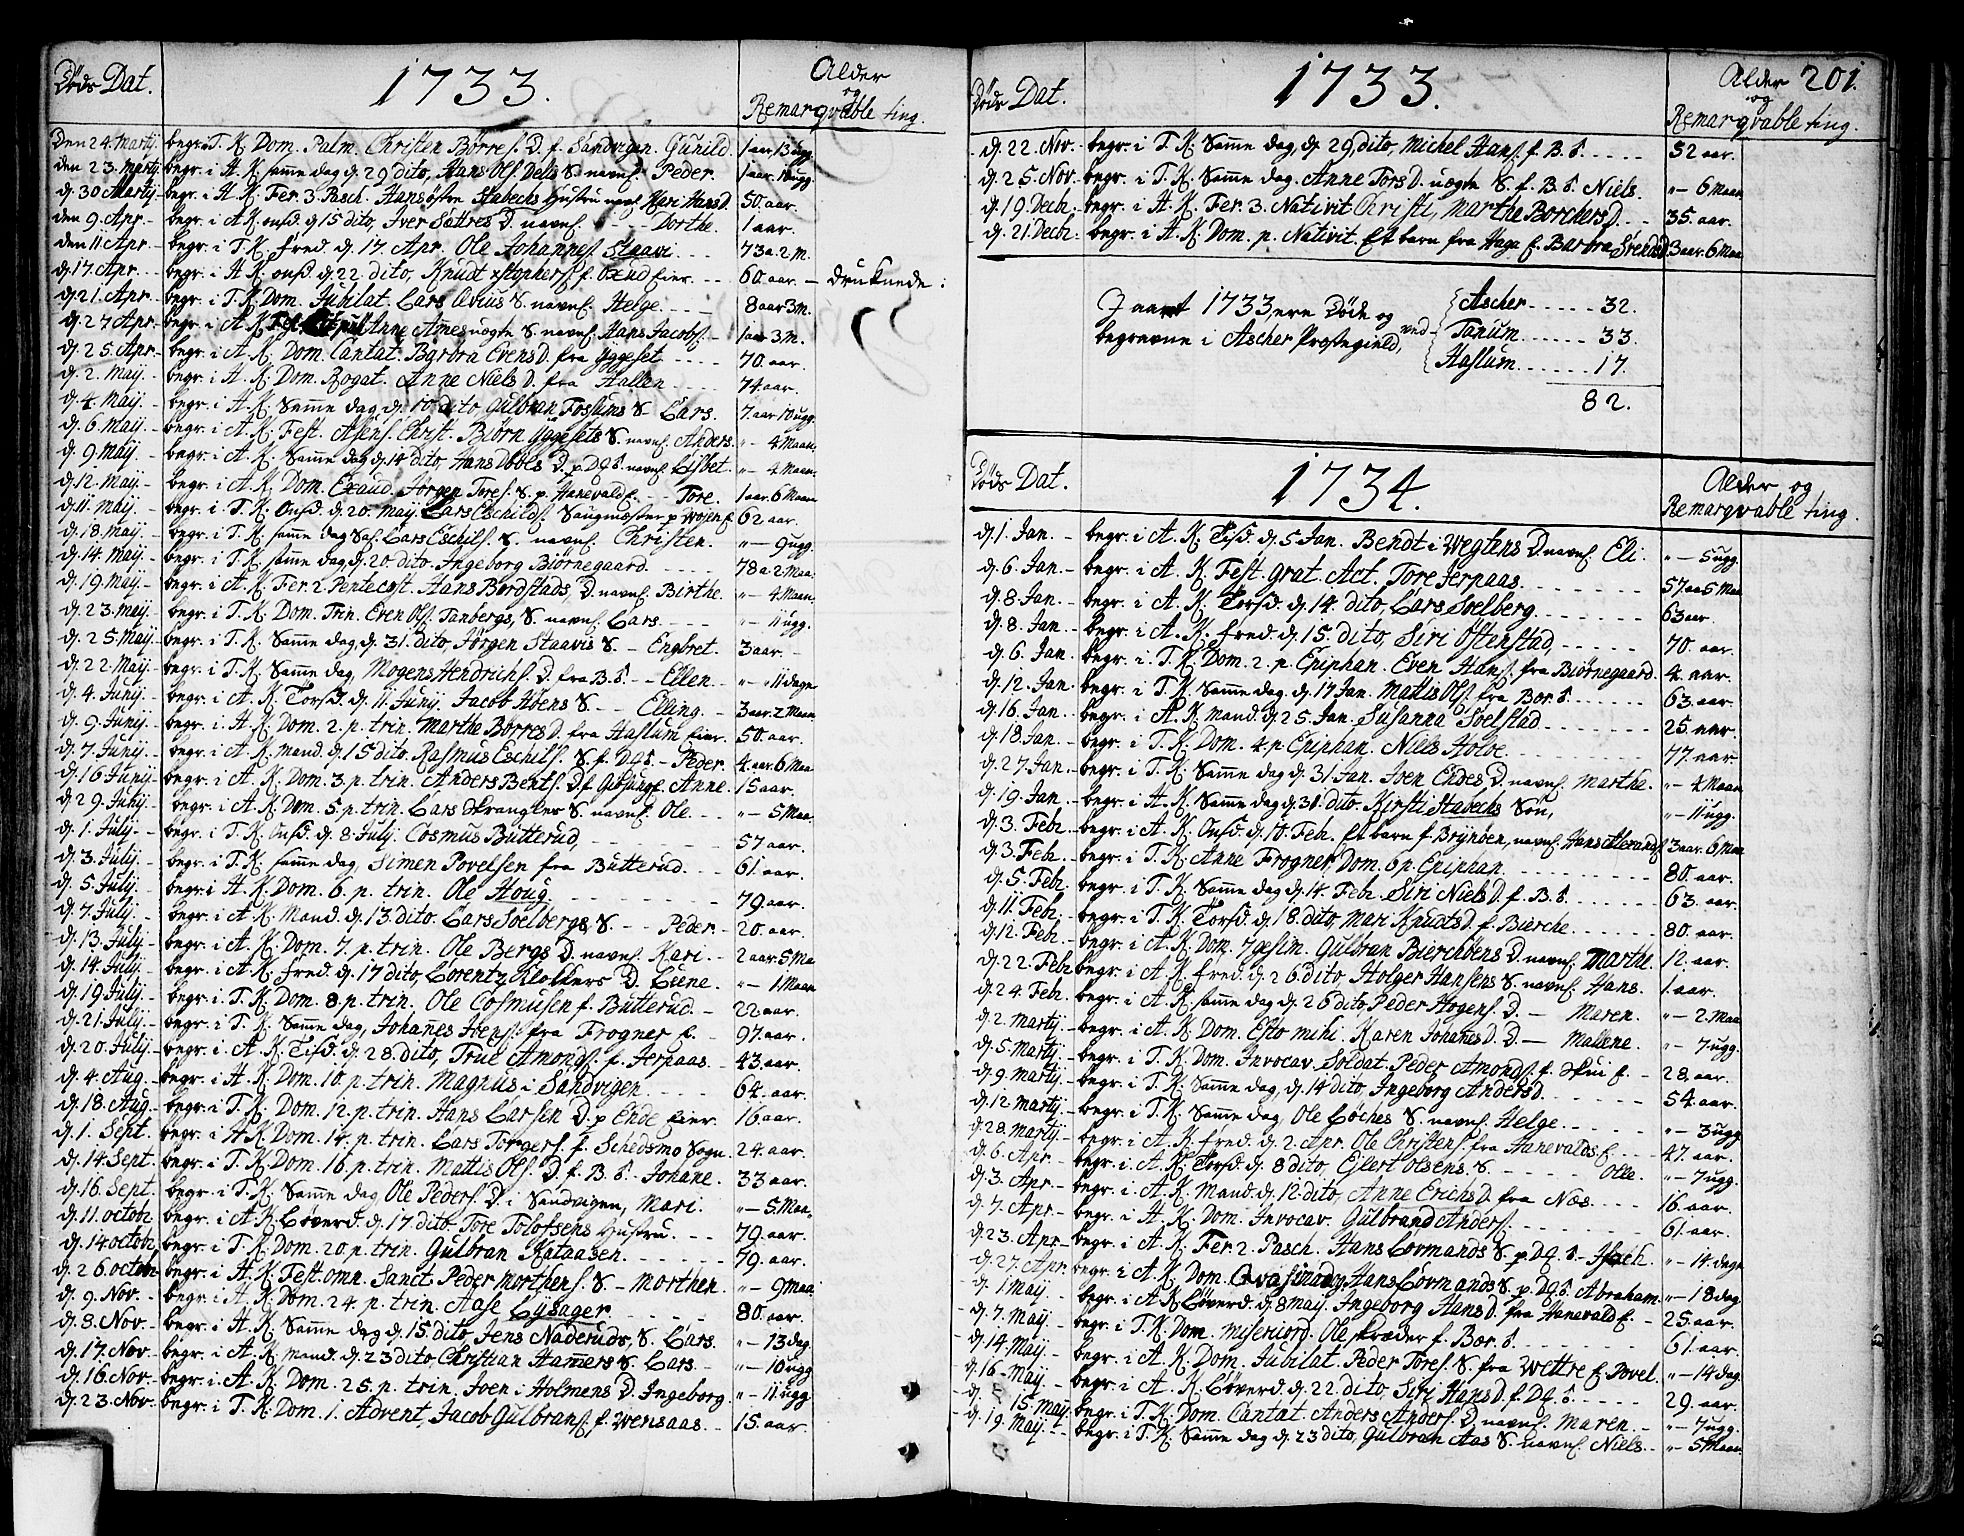 Døds Dat.
1733.
Alder
og
Remarqvable ting.
Den 24. Martij begr. i T. K. Dom. Palm. Christen Børres. D. f. Sandvigen. Gunild. 1 aar, 13 ugg.
den 23. Martij begr. i A. K. samme dag d. 29 dito, Hans Ols. S. navnl. Peder. 1 aar.
d. 30 Martij begr. i A. K. Fer. 3. Pasch. Hans Østre Stabechs Hustru navnl Mari Hansd. 50. aar.
den 9. Apr. begr. i A. K onsd. d. 15 dito, Iver Sættres D. navnl. Dorthe. 1 aar.
den 11 Apr. begr. i T. K. fred. d. 17. Apr. Ole Johannes. Staavi 73 a. 2 M.
d. 17. Apr. begr. i A. K. onsd d. 22 dito, Knudt xstophers. f. Oxnd Eier 60. aar. - druknede.
d. 21. Apr. begr. i T. K. Dom. Jubilat. Lars Ovius S. navnl. Helge 8 aar 3 M.
d. 27 Apr. begr. i A. K. Anne Ames uægte S. navnl. Hans Jacobs. 1 aar 3 M.
d. 25. Apr. begr. i A. K. Dom. Cantat. Barbra Evensd. fra Yggeset 70. aar.
d. 2. Maij. begr. i A. K. Dom. Rogat. Anne Niels D. fra Hallen 74 aar.
d. 4. Maij. begr. i A. K. Samme dag, d. 10 dito, Gulbran Fossums S. Lars. 7. aar 10 ugg.
d. 6. Maij. begr. i A. K. Fest. Asens. Christ. Biørn Yggesets S. navnl. Anders. " - 4 Maan.
d. 9. Maij. begr. i A. K. Samme dag d. 14 dito, Hans D. p. navnl. Lisbet. " - 4 Maan.
d. 12. Maij. begr. i A. K. Dom. Exaud. Jørgen Tores. S. p. Hanevald E. Tore. 1 aar. 6 Maan
d. 11. Maij. begr. i T. K. Onsd. d. 20. Maij. Lars Eschilds. Saugmester p. 62 aar.
d. 18. Maij. begr. i T. K. samme dag Lars Eschils. S. navnl. Christen. " - 9 ugg.
d. 14. Maij. begr. i T. K. samme dag, d. 20. dito Ingeborg Biørnegaard 78 a. 2 Maa.
d. 19. Maij. begr. i A. K. Fer. 2 Pentecost. Hans Bergstads, D. navnl. Birthe. " - 4 Maan.
d. 23. Maij. begr. i T. K. Dom. Trin. Even Ols. Tanbergs, S. navnl. Lars. " - 11 ugg.
d. 25. Maij. begr. i T. K. Samme dag, d. 31. dito, Jørgen Staavis S. - Engbret. 3 aar.
d. 22. Maij. begr. i T. K. Samme dag, Mogens Hendrichs. D. fra B. S. - Ellen. " - " 11 dage
d. 4. Junij. begr. i A. K. Torsd. d. 11 Junij. Jacob Hoens S. - Elling. 3 aar. 2 Maan
d. 9. Junij. begr. i A. K. Dom. 2. p. trin. Marthe Børres D. fra Haslum Eier. 50. aar.
d. 7. Junij. begr. i A. K. Mand. d. 15 dito. Rasmus Eschils. S. f. - Peder. 4. aar. 6 Maa
d. 16 Junij. begr. i A. K. Dom. 3. p. trin. Anders Bents. D. f. Anne. 15 aar.
d. 29. Junij. begr. i A. K. Dom. 5. p. trin. Lars Skranglers S. navnl. Ole. " - 5 Maa.
d. 1. Julij. begr. i T. K. Onsd. d. 8 July. Cosmus Butterud, 57 aar.
d. 3. Julij. begr. i T. K. samme dag, Simen Povelsen fra Butterud. 61. aar.
d. 5. Julij. begr. i A. K. Dom. 6. p. trin. Ole Houg 79. aar.
d. 7. Julij. begr. i A. K. Mand. d. 13. dito. Lars Soelbergs, S. - Peder. 20. aar.
d. 13. Julij. begr. i A. K. Dom. 7. p. trin. Ole Bergs D. navnl. Kari. 2 aar 5 Ma
d. 14. Julij. begr. i A. K. fred. d. 17 dito, Lorentz Klokkers D. Lene. " - 1 Maan
d. 19 Julij. begr. i T. K. Dom. 8. p. trin. Ole Cosmusen f. Butterud. 22 aar.
d. 21. Julij. begr. i T. K. Samme dag, Johanes Joens. fra Frogner E. 97. aar.
d. 20. Julij. begr. i A. K. Tisd. d. 28. dito, True Amonds. f. Jerpaas. 43. aar.
d. 4. Aug. begr. i A. K. Dom. 10. p. trin. Magnus i Sandvigen. 64. aar.
d. 18. Aug. begr. i T. K. Dom. 12. p. trin. Hans Larsen D. p. Ende Eier. 16. aar.
d. 1. Sept. begr. i A. K. Dom. 14. p. trin. Lars Torgers. f. Schedsmo Sogn. 24. aar.
d. 14. Sept. begr. i T. K. Dom. 16. p. trin. Mattis Ols. D. f. B. S. - Johane. 33 aar.
d. 16. Sept. begr. i T. K. Samme dag Ole Peders. D. i Sandvigen, Mari. " - 5. Maa.
d. 11. octobr. begr. i A. K. Løverd. d. 17. dito. Tore Tolofsens Hustru. 79. aar.
d. 14 octobr. begr. i T. K. Dom. 20. p. trin. Gulbran Kataasen. 79. aar.
d. 26. octobr. begr. i A. K. Fest. omn. Sanct. Peder Morthens. S. - Morthen. " - 9 Maa
d. 9. Nov. begr. i A. K. Dom. 24. p. trin. Aase Lysager. 80. aar.
d. 8. Nov. begr. i A. K. Samme dag d. 15. dito, Jens Naderuds, S. Lars. " - 13 dag.
d. 17. Nov. begr. i A. K. Mand. d. 23 dito, Christian Hammers S. Lars. " - 10 ugg
d. 16. Nov. begr. i A. K. Dom. 25. p. trin. Joen i Holmens D. Ingeborg. " - 11 ugg.
d. 23. Nov. begr. i T. K. Dom. 1. Advent, Jacob Gulbrans. f. Wensaas. 15. aar.
Døds Dat.
1733.
Alder 201.
og
Remarqvable ting.
d. 22. Nov. begr. i T. K. Samme dag, d. 29, dito, Michel Hans. f. B. S. 52 aar.
d. 25. Nov. begr. i T. K. Samme dag. Anne Tors D. uægte S. f. B. S. Niels. " - 6 Maan.
d. 19. Decbr. begr. i A. K. Fer. 3. Nativit Christi, Marthe Borchers D. 35. aar.
d. 21 Decbr. begr. i A. K. Dom. p. Nativit. Et barn fra Haga f. Barbra 3 aar. 6 Maa
J aaret 1733, ere Døde og
begravne i Ascher Præstegield, ved
Ascher 32.
Tanum 33.
Haslum 17.
82.
Døds Dat.
1734.
Alder og
Remarqvable ting.
d. 1. Jan. begr. i A. K. Tisd. d. 5 Jan. Bendt i Wegtens D. navnl. Eli. " - 5 ugg.
d. 6. Jan. begr. i A. K. Fest. grat. Act. Tore Jerpaas. 57. aa 5 Maa
d. 8. Jan. begr. i A. K. Torsd. d. 14. dito, Lars Soelberg. 63 aar.
d. 8. Jan. begr. i A. K. fred. d. 15. dito, Siri Østenstad, 70. aar.
d. 6. Jan. begr. i T. K. Dom. 2. p. Epiphan. Even Hans. fra Biørnegaard. 4. aar.
d. 12. Jan. begr. i T. K. Samme dag. d. 17 Jan. Mattis Ols. fra Bær. S. 63. aar.
d. 16. Jan. begr. i A. K. Mand. d. 25. Jan. Susanna Soelstad 25. aar.
d. 18. Jan. begr. i T. K. Dom. 4. p. Epiphan. Niels Hotve. 77. aar.
d. 27. Jan. begr. i T. K. Samme dag d. 31 Jan. Joen Endes D. navnl. Marthe. " - 4 Maan
d. 19. Jan. begr. i A. K. Samme dag d. 31. dito. Kirsti Stabechs Søn, " - 11 ugg.
d. 3. Febr. begr. i A. K. Onsd. d. 10. Febr. Et barn f. Brynøen, navnl. Hans 3 aar. 6 Maa
d. 3. Febr. begr. i T. K. Anne Frogner, Dom. 6 p. Epiphan. 80. aar.
d. 5. Febr. begr. i T. K. Samme dag d. 14. Febr. Siri Niels D. f. B. S. 63. aar.
d. 11. Febr. begr. i T. K. Torsd. d. 18. dito, Mari Knudts D. f. Bierche. 80. aar.
d. 12. Febr. begr. i A. K. Dom. 7gesim. Gulbran Bierchøens D. navnl. Marthe. 12. aar.
d. 22. Febr. begr. i A. K. fred. d. 26. dito, Holger Hansens S. navnl. Hans. 1. aar.
d. 24. Febr. begr. i A. K. samme dag d. 26 dito Peder Hogens. D. - Maren. " - 2. Maa
d. 2. Martij begr. i A. K. Dom. Esto mihi. Karen Johanes D. D. - Mallene. " - 7 ugg.
d. 5. Martij begr. i T. K. Dom. Invocav. Soldat. Peder Amonds. f. Skui E. 28. aar.
d. 9. Martij begr. i T. K. Samme dag, d. 14 dito, Ingeborg Anders D. 54. aar.
d. 12 Martij begr. i T. K. Samme dag, Ole Løches S. navnl. Helge. " - 3 ugg
d. 28. Martij begr. i A. K. fred. d. 2. Apr. Ole Christens. fra Hanevalds E. 47. aar.
d. 6. Apr. begr. i A. K. Torsd. d. 8 dito, Eilert Olsens. S. Olle. " - 7 ugg.
d. 3. Apr. begr. i A. K. Mand. d. 12. dito, Anne Erichs D. fra Næs. 16. aar.
d. 7. Apr. begr. i A. K. Dom. Invocav. Gulbrand Anders. 61. aar.
d. 23. Apr. begr. i A. K. Fer. 2. Pasch. Hans Lørmands S. p. " - 14 dage
d. 27. Apr. begr. i A. K. Dom. Hans Lørmands S. p. Abraham. " - 18 dag
d. 1 Maij begr. i A K Løverd. d. 8 Maij. Ingeborg Hans D. fra Hanevald E. 25. aar.
d. 7. Maij begr. i T. K. Dom. Misericord. Ole skræder f. Bær. S. 61. aar.
d. 14. Maij begr. i A. K. Dom. Jubilat. Peder Tores. S. fra Wettre E. Povel. " - 14 dag.
d. 16. Maij begr. i A. K. Løverd. d. 22. dito, Siri Hans D. f. 29. aar.
d. 15. Maij begr. i T. K. Dom. Cantat. Anders Anders. D. navnl. Maren. " - 7 ugg.
d. 19. Maij begr. i T. K. Samme dag d. 23 dito, Gulbran Aas S. navnl. Niels. " - 5 Maan.